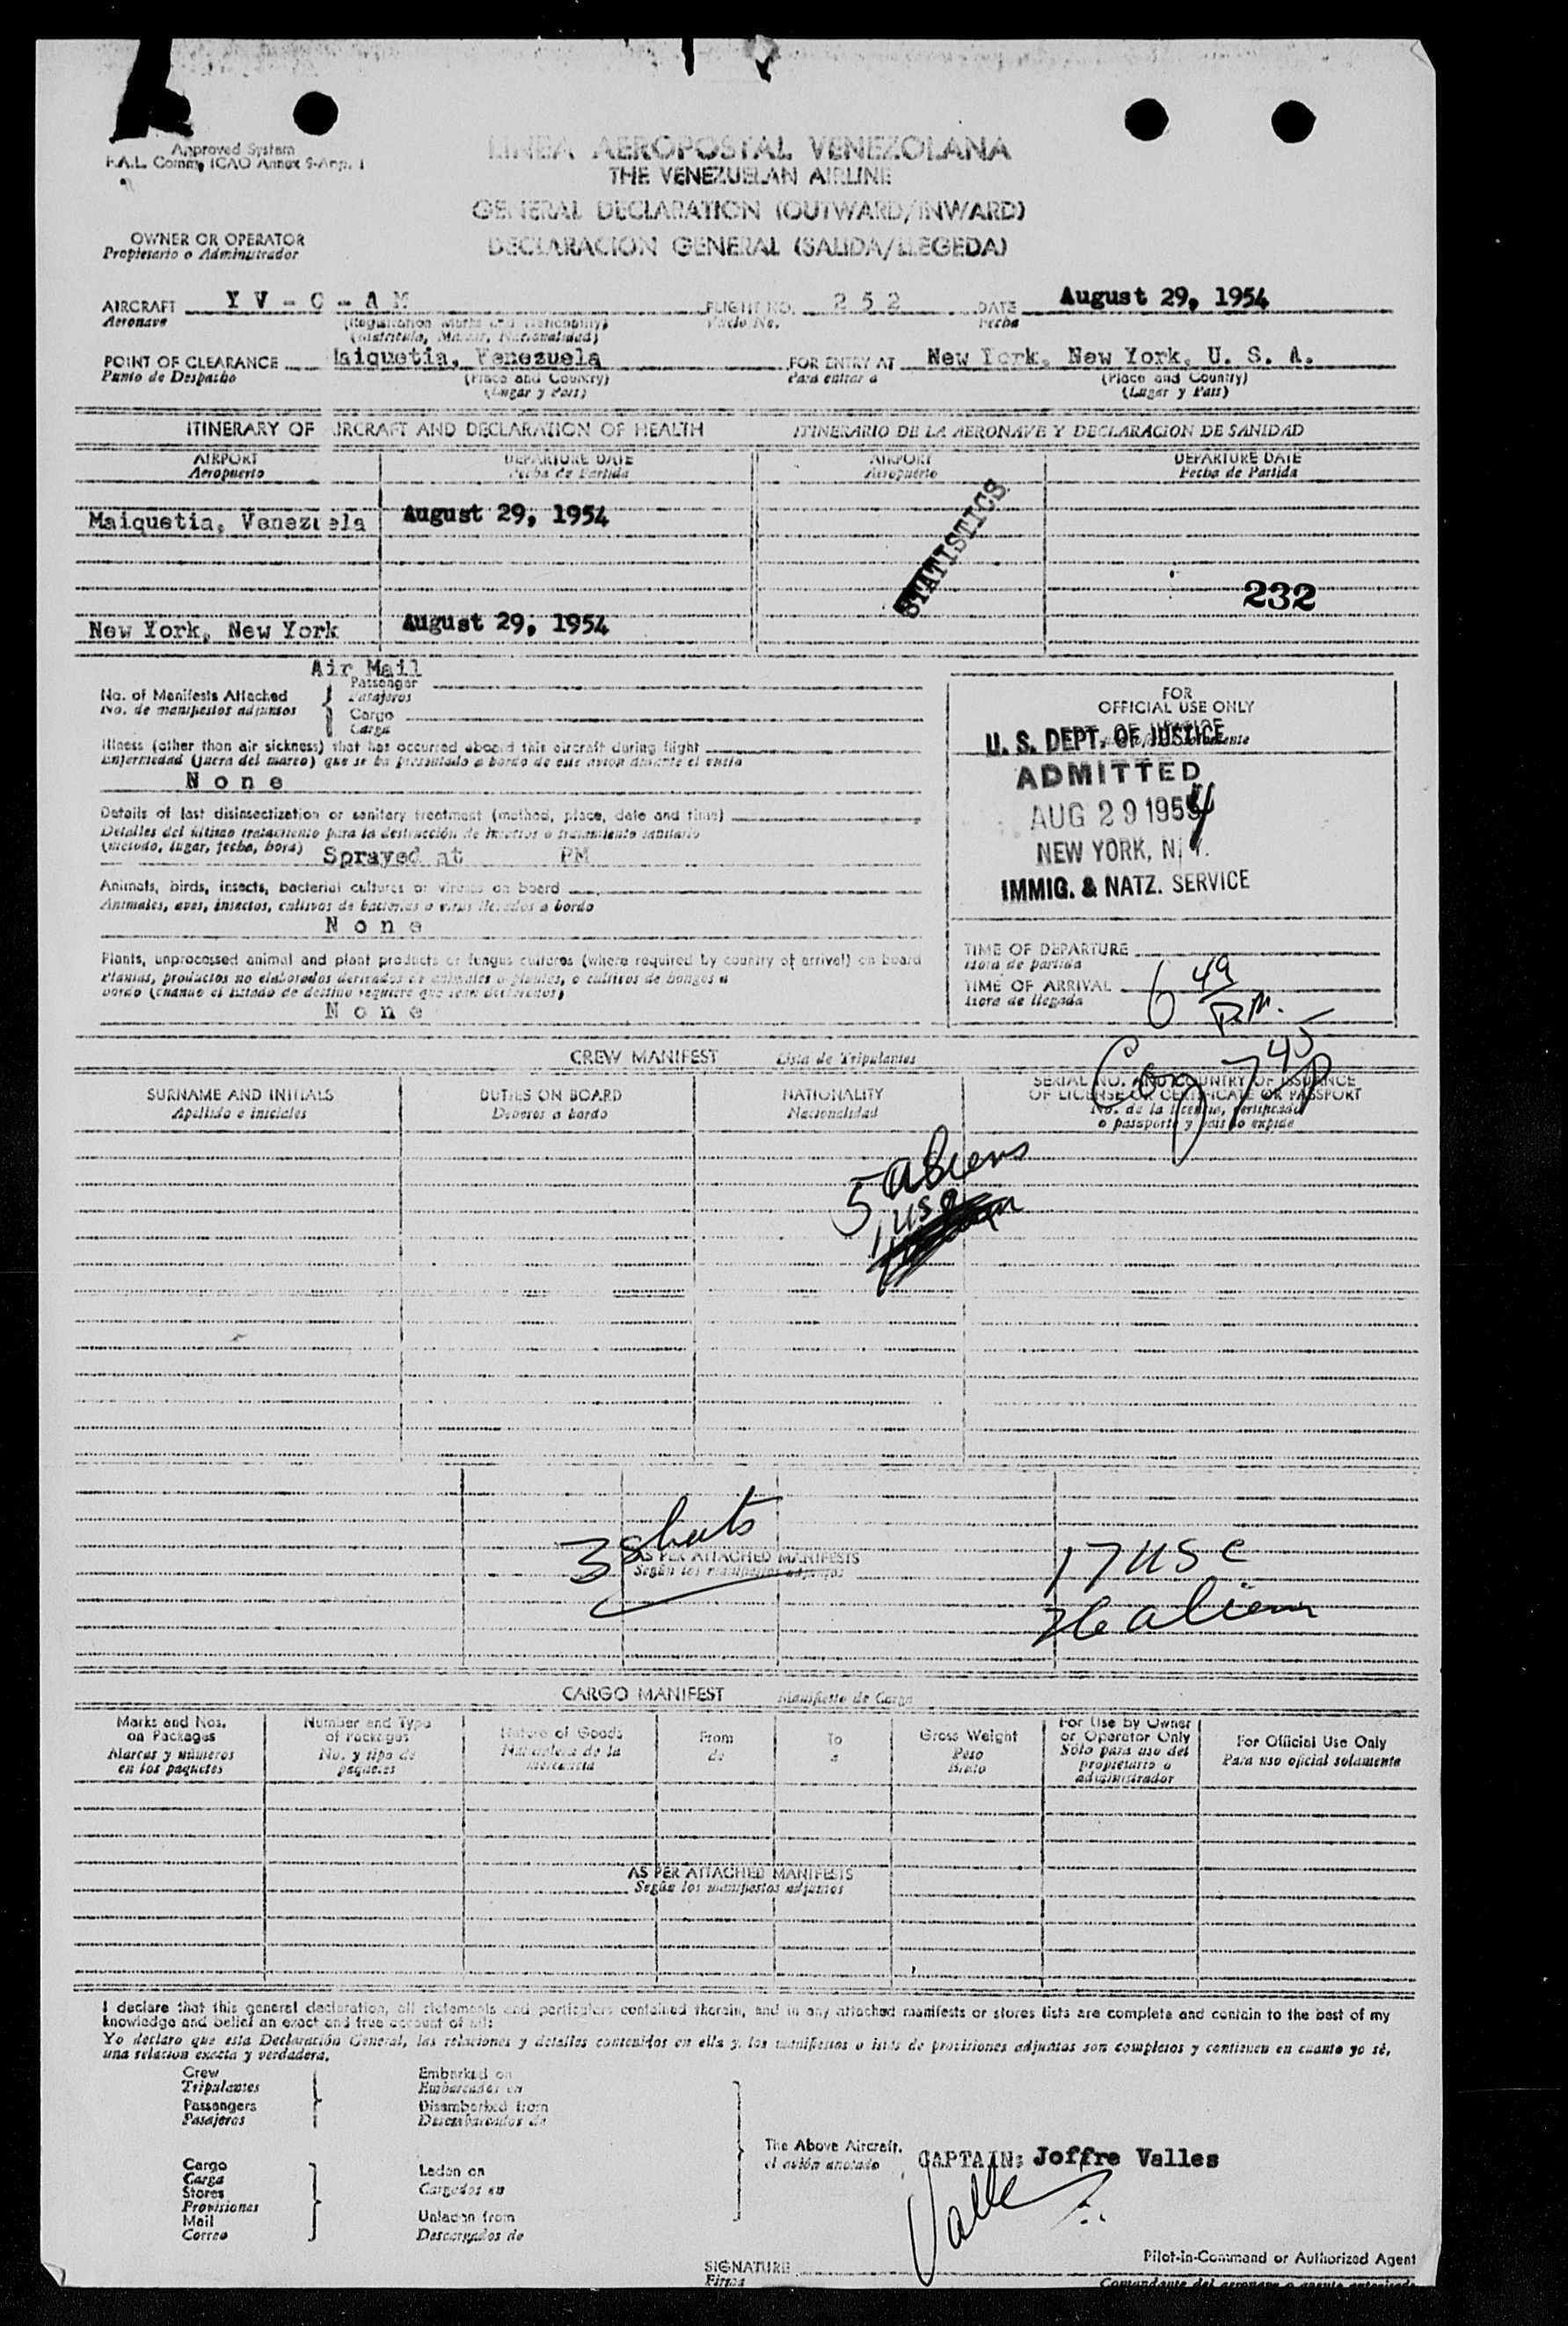 Approved System
F.A.L. Comm, ICAO Annex 9-App. 1
LINEA AEROPOSTAL VENEZOLANA
THE VENEZUELAN AIRLINE
GENERAL DECLARATION (OUTWARD/INWARD)
DECLARACION GENERAL (SALIDA/LLEGEDA)
OWNER OR OPERATOR
Propietario o Administrador
AIRCRAFT Y V - C - A M FLIGHT NO. 2 5 2 DATE August 29, 1954
Aeronave (Registration Marks and Nationality) Vuelo No. Fecha
(Matricula, Marcas, Nacionalidad)
POINT OF CLEARANCE Maiquetia, Venezuela FOR ENTRY AT New York, New York, U. S. A.
Punto de Despacho (Place and Country) Para entrar a (Place and Country)
(Lugar y Pais) (Lugar y Pais)
ITINERARY OF IRCRAFT AND DECLARATION OF HEALTH ITINERARIO DE LA AERONAVE Y DECLARACION DE SANIDAD
AIRPORT DEPARTURE DATE AIRPORT DEPARTURE DATE
Aeropuerto Fecha de Partida Aeropuerto Fecha de Partida
STATISTICS
Maiquetia, Venezuela August 29, 1954
232
New York, New York August 29, 1954
Air Mail
No. of Manifests Attached Passenger
No. de manifiestos adjuntos Pasajeros
Cargo
Carga
Illness (other than air sickness) that has occurred aboard this aircraft during flight
Enfermedad (fuera del mareo) que se ha presentado a bordo de este avion durante el vuelo
N o n e
Details of last disinsectization or sanitary treatment (method, place, date and time)
Detalles del último tratamiento para la destrucción de insectos o tratamiento sanitario
(metodo, lugar, fecha, hora) Sprayed at PM
Animals, birds, insects, bacterial cultures or viruses on board
Animales, aves, insectos, cultivos de bacterias o virus llevados a bordo
N o n e
Plants, unprocessed animal and plant products or fungus cultures (where required by country of arrival) on board
Plantas, productos no elaborados derivados de animales o plantas, o cultivos de hongos a
bordo (cuando el Estado de destino requiere que sean declarados)
N o n e
FOR
OFFICIAL USE ONLY
U. S. DEPT. OF JUSTICE
ADMITTED
AUG 29 1954
NEW YORK, N. Y.
IMMIG. & NATZ. SERVICE
TIME OF DEPARTURE
Hora de partida
TIME OF ARRIVAL 6 49 P.M.
Hora de llegada
CREW MANIFEST Lista de Tripulantes
7 45 P
SURNAME AND INITIALS DUTIES ON BOARD NATIONALITY SERIAL NO. AND COUNTRY OF ISSUANCE
Apellido e iniciales Deberes a bordo Nacionalidad OF LICENSE OR CERTIFICATE OR PASSPORT
No. de la licencia, certificado
o pasaporte y pais do expide
5 aliens
1 usc
3 sheets
AS PER ATTACHED MANIFESTS
Según los manifiestos adjuntos
17 usc
26 aliens
CARGO MANIFEST Manifiesto de Carga
Marks and Nos. Number and Type Nature of Goods From To Gross Weight For Use by Owner For Official Use Only
on Packages of Packages Naturaleza de la de a Peso or Operator Only Para uso oficial solamente
Marcas y números No. y tipo de mercancia Bruto Sólo para uso del
en los paquetes paquetes propietario o
administrador
AS PER ATTACHED MANIFESTS
Según los manifiestos adjuntos
I declare that this general declaration, all statements and particulars contained therein, and in any attached manifests or stores lists are complete and contain to the best of my
knowledge and belief an exact and true account of all:
Yo declaro que esta Declaración General, las relaciones y detalles contenidos en ella y los manifiestos o listas de provisiones adjuntas son completos y contienen en cuanto yo sé,
una relacion exacta y verdadera.
Crew Embarked on
Tripulantes Embarcados en
Passengers Disembarked from
Pasajeros Desembarcados de
The Above Aircraft. CAPTAIN: Joffre Valles
el avión anotado
Cargo Laden on
Carga Cargados en
Stores
Provisiones
Mail Unladen from
Correo Descargados de
Valles
Pilot-in-Command or Authorized Agent
SIGNATURE
Firma Comandante del aeronave o agente autorizado